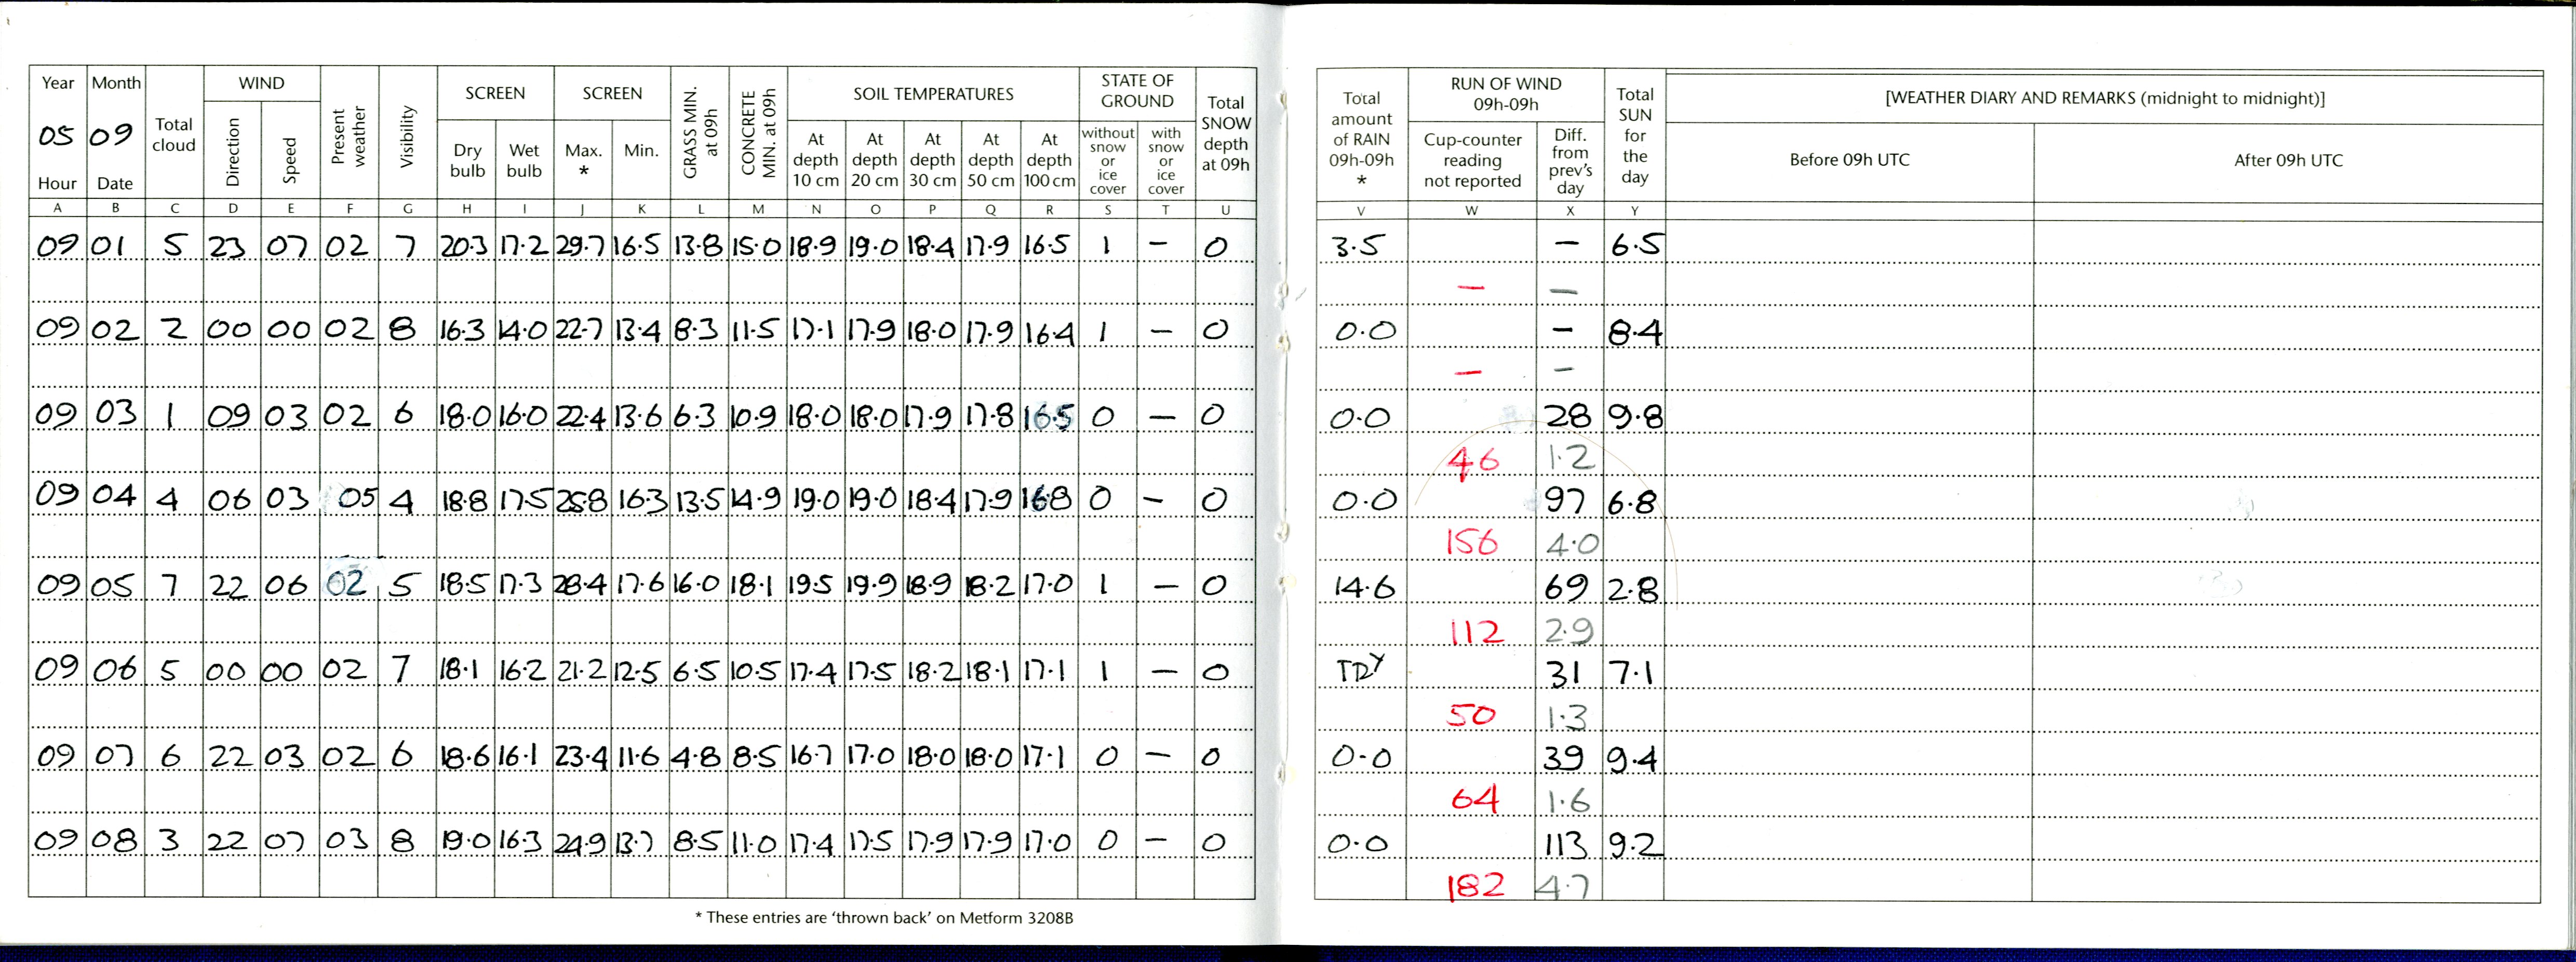 Year Month Total cloud WIND Present weather Visibility SCREEN SCREEN GRASS MIN. at 09h CONCRETE MIN. at 09h SOIL TEMPERATURES STATE OF GROUND Total SNOW depth at 09h Total amount of RAIN 09h-09h * RUN OF WIND 09h-09h Total SUN for the day [WEATHER DIARY AND REMARKS (midnight to midnight)]
05 09
Hour Date Direction Speed Dry bulb Wet bulb Max. * Min. At depth 10 cm At depth 20 cm At depth 30 cm At depth 50 cm At depth 100 cm without snow or ice cover with snow or ice cover Cup-counter reading not reported Diff. from prev's day Before 09h UTC After 09h UTC
A B C D E F G H I J K L M N O P Q R S T U V W X Y
09 01 5 23 07 02 7 20.3 17.2 29.7 16.5 13.8 15.0 18.9 19.0 18.4 17.9 16.5 1 – 0 3.5 – 6.5
– –
09 02 2 00 00 02 8 16.3 14.0 22.7 13.4 8.3 11.5 17.1 17.9 18.0 17.9 16.4 1 – 0 0.0 – 8.4
– –
09 03 1 09 03 02 6 18.0 16.0 22.4 13.6 6.3 10.9 18.0 18.0 17.9 17.8 16.5 0 – 0 0.0 28 9.8
46 1.2
09 04 4 06 03 05 4 18.8 17.5 25.8 16.3 13.5 14.9 19.0 19.0 18.4 17.9 16.8 0 – 0 0.0 97 6.8
156 4.0
09 05 7 22 06 02 5 18.5 17.3 28.4 17.6 16.0 18.1 19.5 19.9 18.9 18.2 17.0 1 – 0 14.6 69 2.8
112 2.9
09 06 5 00 00 02 7 18.1 16.2 21.2 12.5 6.5 10.5 17.4 17.5 18.2 18.1 17.1 1 – 0 31 7.1
50 1.3
09 07 6 22 03 02 6 18.6 16.1 23.4 11.6 4.8 8.5 16.7 17.0 18.0 18.0 17.1 0 – 0 0.0 39 9.4
64 1.6
09 08 3 22 07 03 8 19.0 16.3 24.9 13.7 8.5 11.0 17.4 17.5 17.9 17.9 17.0 0 – 0 0.0 113 9.2
182 4.7
* These entries are ‘thrown back’ on Metform 3208B